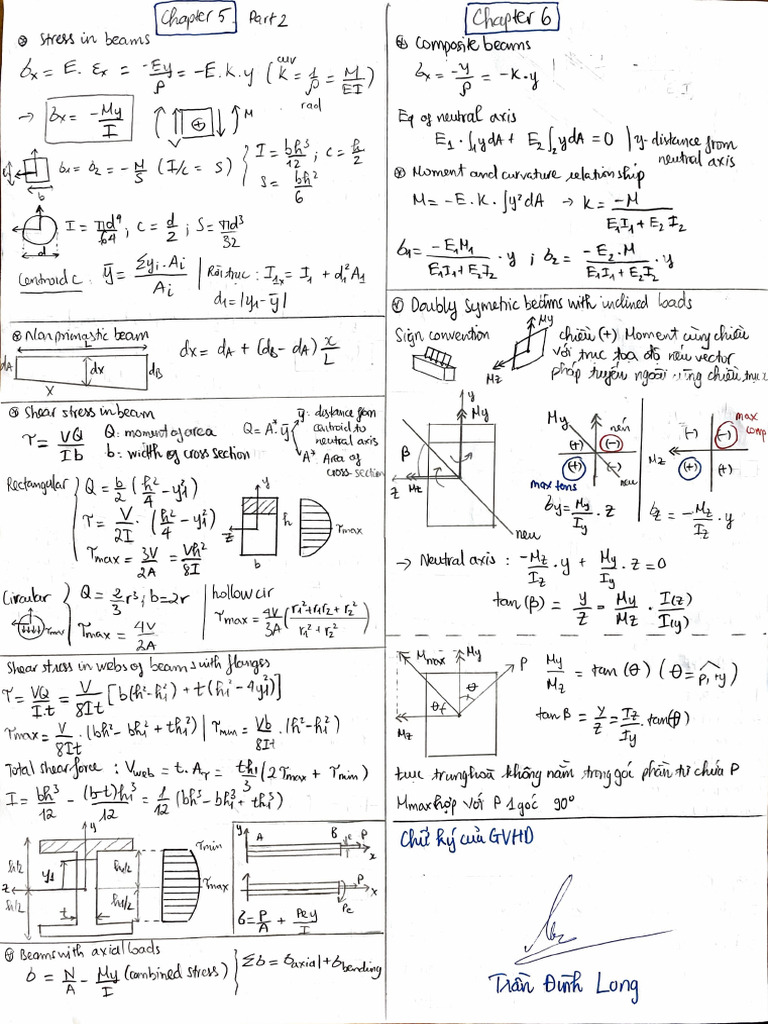 Chapter 5 Part 2
⊛ Stress in beams
σx = E. εx = -Ey/ρ = -E.K.y (cuv K = 1/ρ = M/EI)
rad
→ σx = -My/I
M
σ1 = σ2 = -M/S (I/c = S) { I = bh³/12 ; c = h/2
S = bh²/6
b
I = πd⁴/64 ; c = d/2 ; S = πd³/32
d
Centroid C : ȳ = Σyi.Ai/Ai | Rời trục : I1x = I1 + d1²A1
d1 = |y1 - ȳ|
⊛ Nonprismastic beam
L
dA dx dB
x
dx = dA + (dB - dA) x/L
⊛ Shear stress in beam
τ = VQ/Ib
Q: moment of area
b: width of cross section
Q = A*.ȳ
ȳ: distance from centroid to neutral axis
A*: Area of cross-section
Rectangular { Q = b/2 (h²/4 - y1²)
τ = V/2I . (h²/4 - y1²)
τmax = 3V/2A = Vh²/8I
y z b h τmax
Circular { Q = 2/3 r³ ; b = 2r
τmax = 4V/2A
hollow cir
τmax = 4V/3A (r1² + r1r2 + r2²/r1² + r2²)
Shear stress in webs of beams with flanges
τ = VQ/I.t = V/8It [b(h² - h1²) + t(h1² - 4y1²)]
τmax = V/8It . (bh² - bh1² + th1²) | τmin = Vb/8It . (h² - h1²)
Total shear force : Vweb = t.Aτ = th1/3 (2τmax + τmin)
I = bh³/12 - (b-t)h1³/12 = 1/12 (bh³ - bh1³ + th1³)
y
h/2 y1 h1/2 τmin
z τmax
h/2 t h1/2
y A B e P x
P x
Pe
σ = P/A + Pey/I
⊛ Beams with axial loads
σ = N/A - My/I (combined stress) } Σσ = σaxial + σbending
Chapter 6
⊛ Composite beams
σx = -y/ρ = -K.y
Eq of neutral axis
E1.∫1 ydA + E2∫2 ydA = 0 | y - distance from neutral axis
⊛ Moment and curvature relationship
M = -E.K.∫y²dA → K = -M/E1I1 + E2I2
σ1 = -E1M1/E1I1 + E2I2 . y ; σ2 = -E2.M/E1I1 + E2I2 . y
⊛ Doubly symetric beams with inclined loads
Sign convention
My
Mz
chiều (+) Moment cùng chiều
với trục tọa độ nếu vector
pháp tuyến ngoài cùng chiều trục
y
My
β
z Mz
neu
My nén
(+) (-)
(+) (-)
max tens neu
σy = My/Iy . z
max comp
(-) (-)
Mz
(+) (+)
σz = -Mz/Iz . y
→ Neutral axis : -Mz/Iz . y + My/Iy . z = 0
tan(β) = y/z = My/Mz . I(z)/I(y)
Mmax My P
θ
Mz
My/Mz = tan(θ) (θ = P, y)
tanβ = y/z = Iz/Iy . tan(θ)
trục trung hoà không nằm trong góc phần tư chứa P
Mmax hợp với P 1 góc 90°
Chữ ký của GVHD
Trần Đình Long